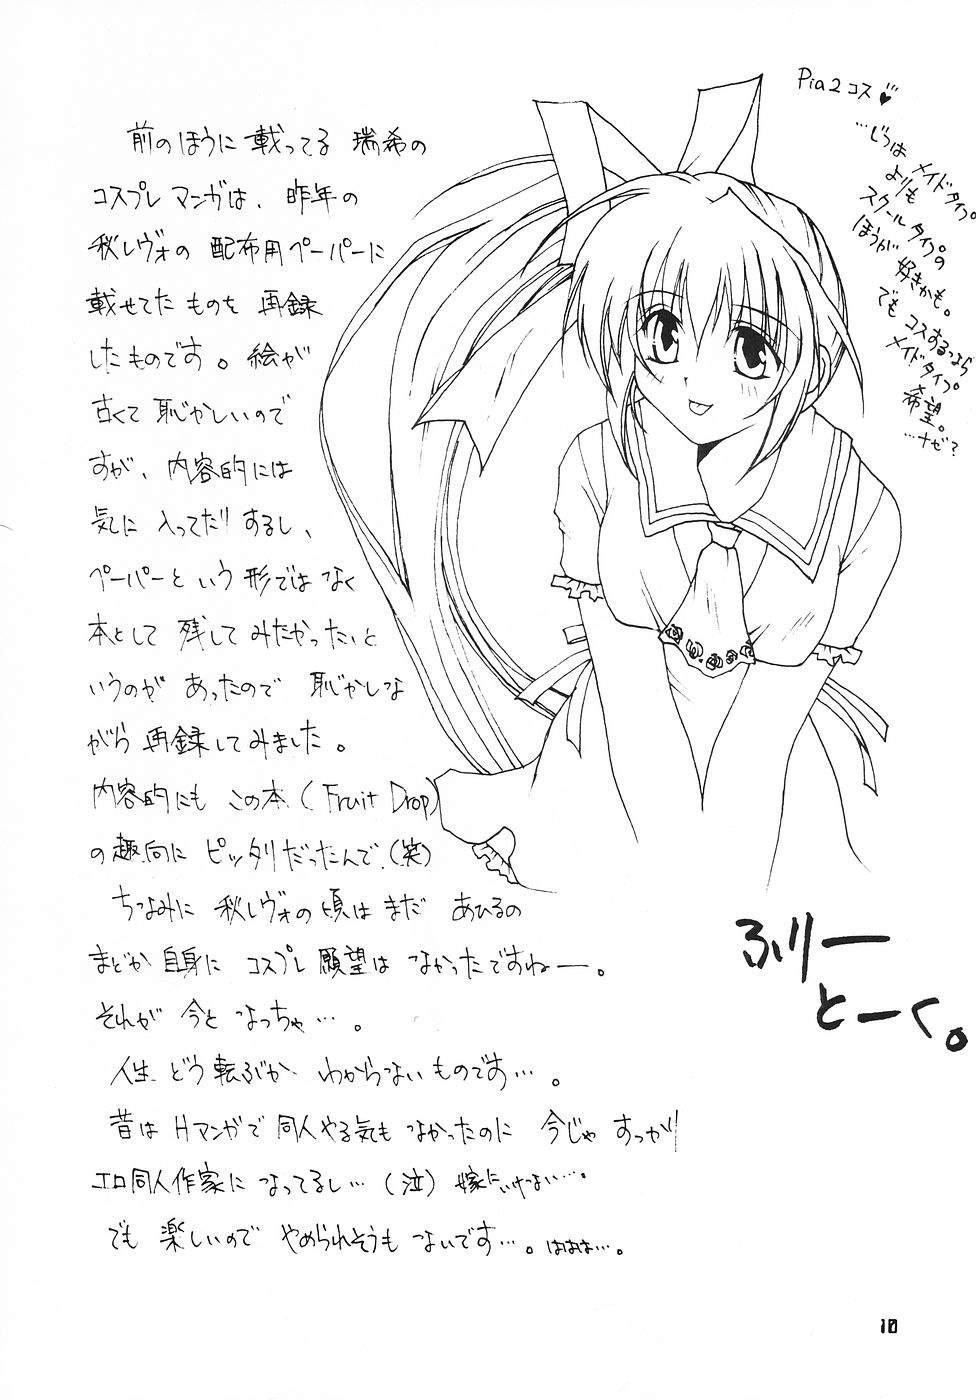 前のほうに載ってる瑞希の
コスプレマンガは、昨年の
秋レヴォの配布用ペーパーに
載せてたものを再録
したものです。絵が
古くて恥かしいので
すが、内容的には
気に入ってたりするし、
ペーパーという形ではなく
本として残してみたかったいと
いうのがあったので恥かしな
がら再録してみました。
内容的にもこの本(Fruit Drop)
の趣向にピッタリだったんで(笑)
ちなみに秋レヴォの頃はまだあひるの
まどか自身にコスプレ願望はなかったですねー。
それが今となっちゃ…。
人生どう転ぶかわからないものです…。
昔はHマンガで同人やる気もなかったのに今じゃすっかり
エロ同人作家になってるし…(泣)嫁にいけない…。
でも楽しいのでやめられそうもないです…。はぁぁ…。
Pia2コス♥
…じつは
メイドタイプ。
よりも
スクールタイプの
ほうが好きかも。
でもコスするなら
メイドタイプ。
希望。
…ナゼ?
ふりー
とーく。
10